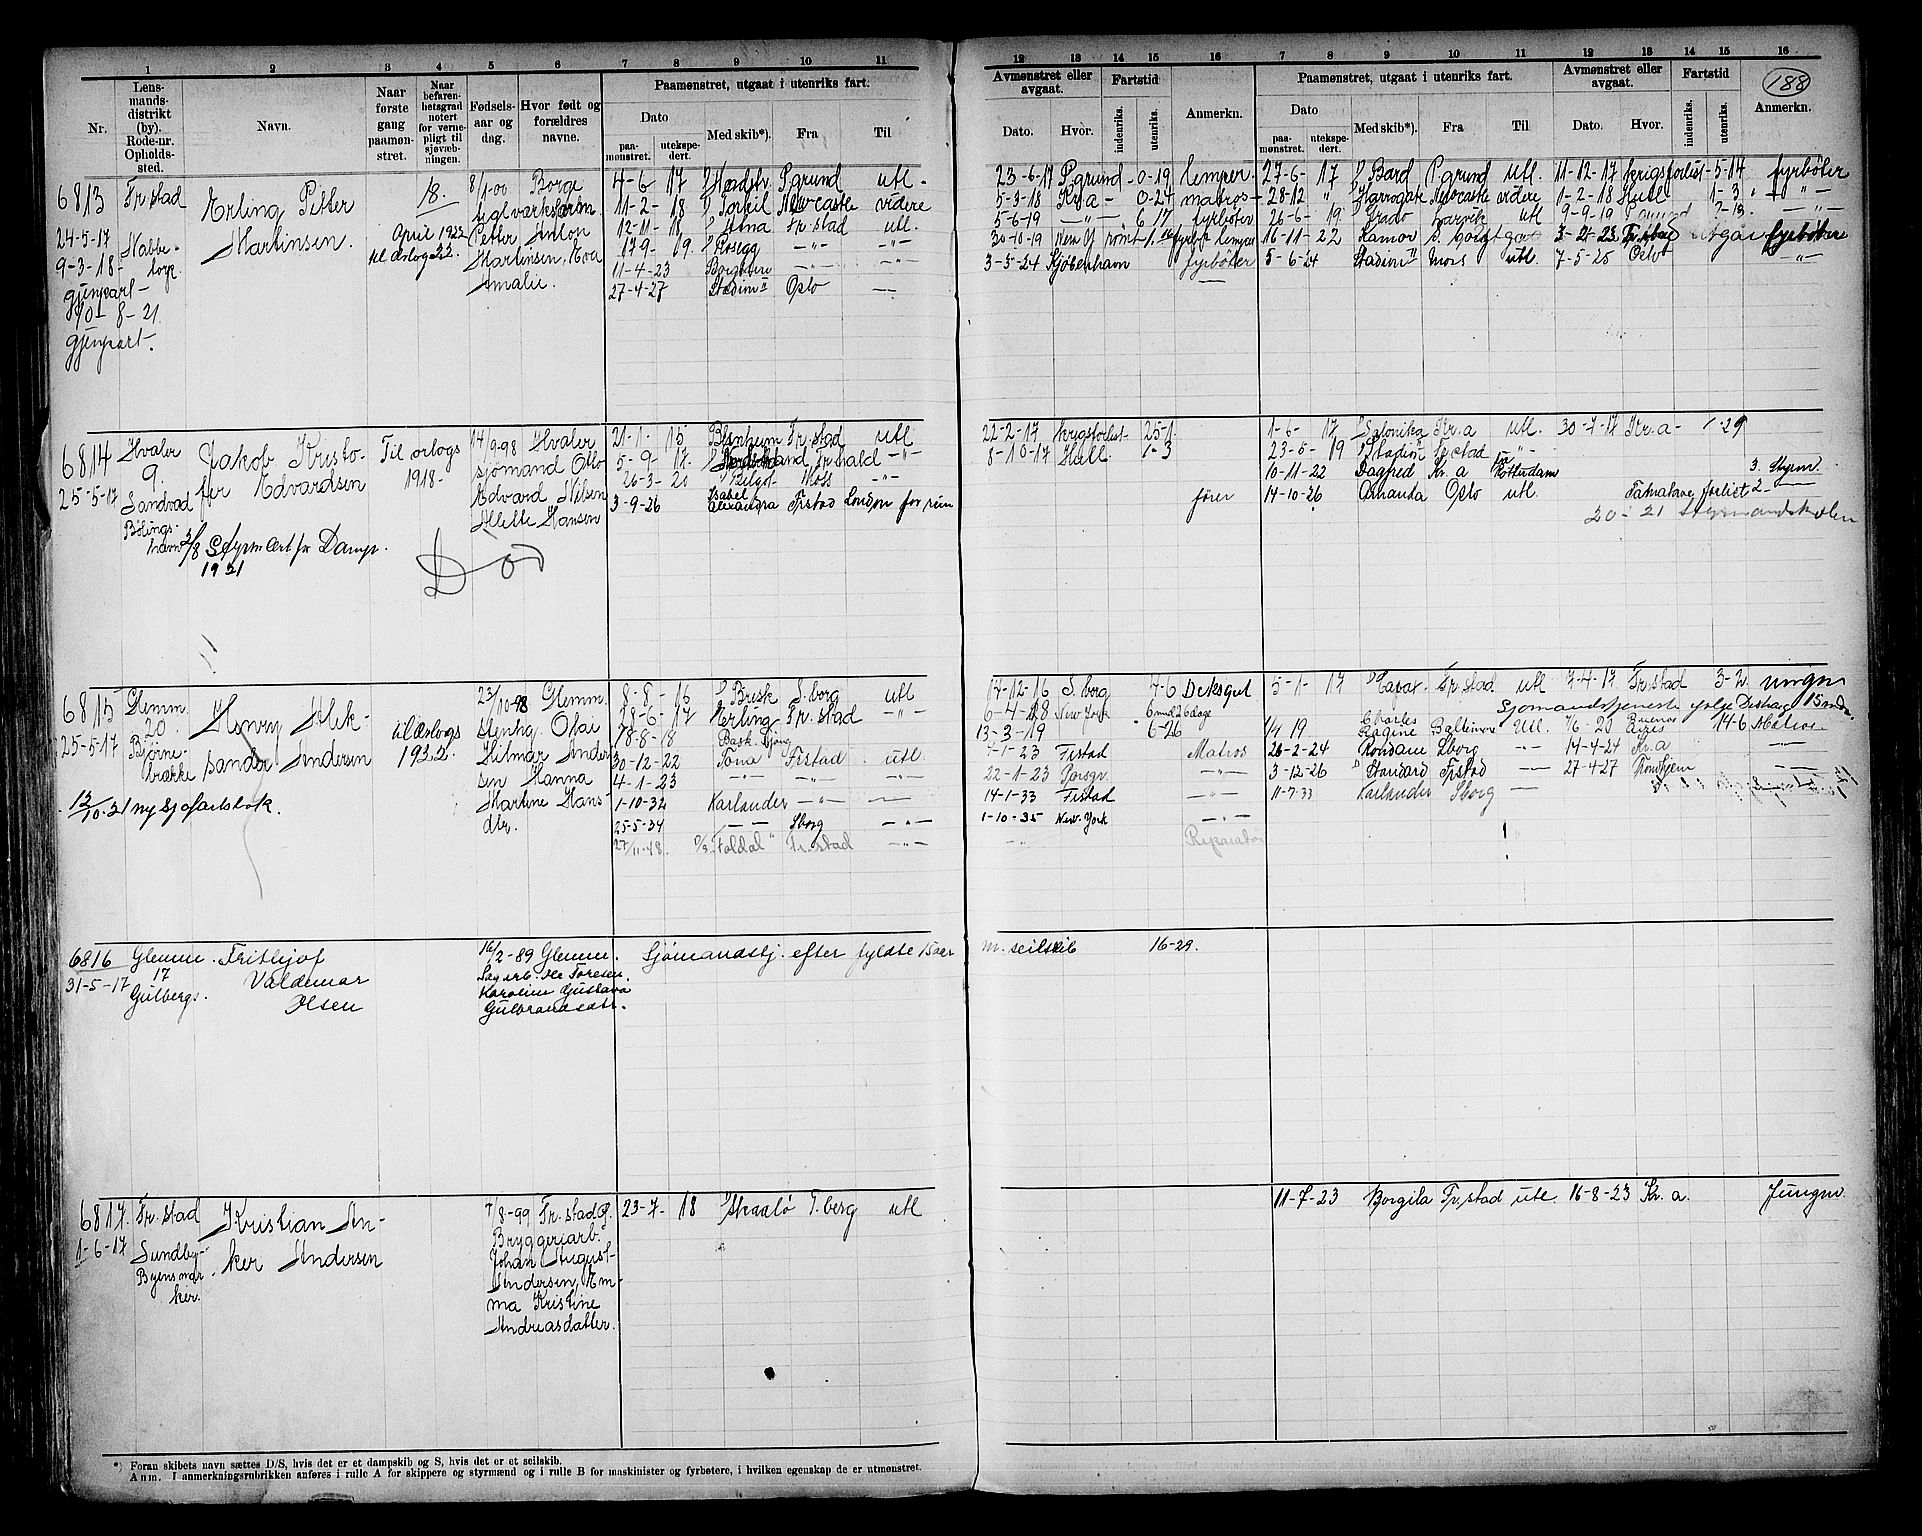 1 2 3 4 5 6 7 8 9 10 11
Nr.
Lens-
mands-
distrikt
(by).
Rode-nr.
Opholds-
sted.
Navn.
Naar
første
gang
paamøn-
stret.
Naar
befaren-
hetsgrad
notert
for verne-
pligt til
sjøvæb-
ningen.
Fødsels-
aar og
dag.
Hvor født og
forældres
navne.
Paamønstret, utgaat i utenriks fart.
Dato
paa-
mønstret.
utekspe-
dert.
Med skib*).
Fra
Til
12 13 14 15 16 7 8 9 10 11 12 13 14 15 16
Avmønstret eller
avgaat.
Dato.
Hvor.
Fartstid
indenriks.
utenriks.
Anmerkn.
Paamønstret, utgaat i utenriks fart.
Dato
paa-
mønstret.
utekspe-
dert.
Med skib*).
Fra
Til
Avmønstret eller
avgaat.
Dato.
Hvor.
Fartstid
indenriks.
utenriks.
188
Anmerkn.
6813
24-5-17
9-3-18-
gjenpart-
8-21
gjenpart.
Fr.stad
Nabbe-
torp.
Erling Petter
Martinsen.
18.
April 1922
til orlog 22.
8/1-00 Borge
Teglverksform
Petter Anton
Martinsen, Eva
Amalie.
4-6 17 Hadsel P.grund utl.
11-2-18 Torkil Newcastle videre
12-11-18 Edna Fr.stad utl.
17-9-19 Rosegg -"- -"-
11-4-23 Borgland -"- -"-
27-4-27 Stadion" Oslo —
23-6-17 P.grund - 0-19 lemper.
5-3-18 Kr.a - 0-24 matros-
5-6-19 -"- 6 17 fyrbøter
30-10-19 New Y rømt 1.16 fyrb. lemper
3-5-24 Kjøbenhavn fyrbøter
27-6-17 Bard P.grund utl. 11-12-17 krigsforlist-5-14 fyrbøter
28-12 " Harrogate Newcastle videre 1-2-18 Hull 1-3 " -"-
26-6-19 Bodø Larvik utl 9-9-19 P.grund 2-13. -"-
16-11-22 Kamor S.borg 3-2-23 Fr.stad fyrbøtere
5-6-24 Stadion" Moss utl. 7-5-25 Oslo -"-
6814
25-5-17
Hvaler
9.
Sandvad
Bølings-
havn
Jakob Kristo-
fer Edvardsen
2/8 Styrm Cert for Damp.
1921
Til orlogs
1918-
14/9-98 Hvaler
sjømand Otto
Edvard Nilsen
Alette Hansen
Død
21-1-15 Blenheim Fr.stad utl
5-9-17. Nordstrand Fr.hald -"-
26-3-20 Belgot Moss -"-
3-9-26 Isabel Alexandra Frstad London for rum
22-2-17 krigsforlist- 25-1
8-10-17 Hull 1-3
fører
1-6-17 Salonika Kr.a utl. 30-7-17 Kr.a- 1-29
23-5-19 "Stadion" Frstad -"-
10-11-22 Dagfred Kr.a Rotterdam 3. Styrm
14-10-26 Amanda Oslo utl. Tamatave forlist 2-"-
20-21 Styrmandskolen
6815
25-5-17
12/10-21 ny sjøfartsbok.
Glemm.
20.
Bjørne-
bække
Henry Alek-
sander Andersen
til orlogs
1922.
23/10-98 Glemm.
Stenhg. Olai
Hilmar Ander-
sen Hanna
Martine Hans-
dtr.
8-8-16 Brisk S.borg utl
28-6-17 Herling Fr.stad -"-
18-8-18 Bask
30-12-22 Tona Frstad utl.
4-1-23 -"- -"- -"-
1-10-32 Karlander -"- —
25-5-34 -"- Sborg -"-
27/11-48 Foldal" Fr.stad -"-
17-12-16 S.borg 7-6 Deksgut
6-4-18 New York 6 mnd 26 dage
13-3-19 6-26
4-1-23 Frstad Matros
22-1-23 Porsgr. -"-
14-1-33 Frstad -"-
1-10-35 New York -"-
-"- Reparatør
5-1-17 Fr.stad utl 7-4-17 Fr.stad 3-2. ungm
Sjømandstjeneste ifølge Disharg 15 mdr.
1/4 19 Charles Racine Baltimore Utl. 7/6-20 Buenos Aires 14-6 Matros
26-2-24 Rondane Sborg -"- 14-4-24 Kr.a -"-
3-12-26 Standard Frstad -"- 27-4-27 Trondhjem -"-
11-7-33 Karlander Sborg —
6816
31-5-17
Glemm.
17
Gulbergs.
Frithjof
Valdemar
Olsen
16/2-89 Glemm.
Sagarb. Ole Toresen.
Karoline Gustava
Gulbrandsdtr.
Sjømandstj. efter fyldte 15 aar m. seilskib 16-29.
6817.
1-6-17
Fr.stad
Sundby-
Byensmar-
ker.
Kristian An-
ker Andersen
4/8-99 Fr.stad.
Bryggeriarb.
Johan August
Andersen, Em-
ma Kristine
Andreasdatter.
23-7-18 Skaalø T.berg utl
11-7-23 Borgila Fr.stad utl. 16-8-23 Kr.a. Jungm.
*) Foran skibets navn sættes D/S, hvis det er et dampskib og S, hvis det er et seilskib.
Anm. I anmerkningsrubrikken anføres i rulle A for skippere og styrmænd og i rulle B for maskinister og fyrbøtere, i hvilken egenskap de er utmønstret.